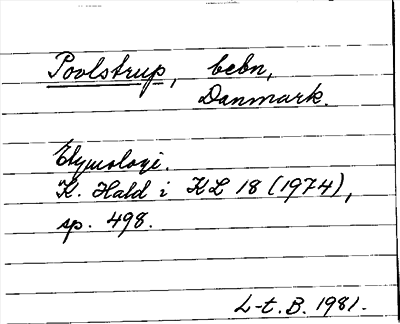 Povlstrup, bebn,
Danmark.
Etymologi.
K. Hald i KL 18 (1974),
sp. 498.
L-t. B. 1981.